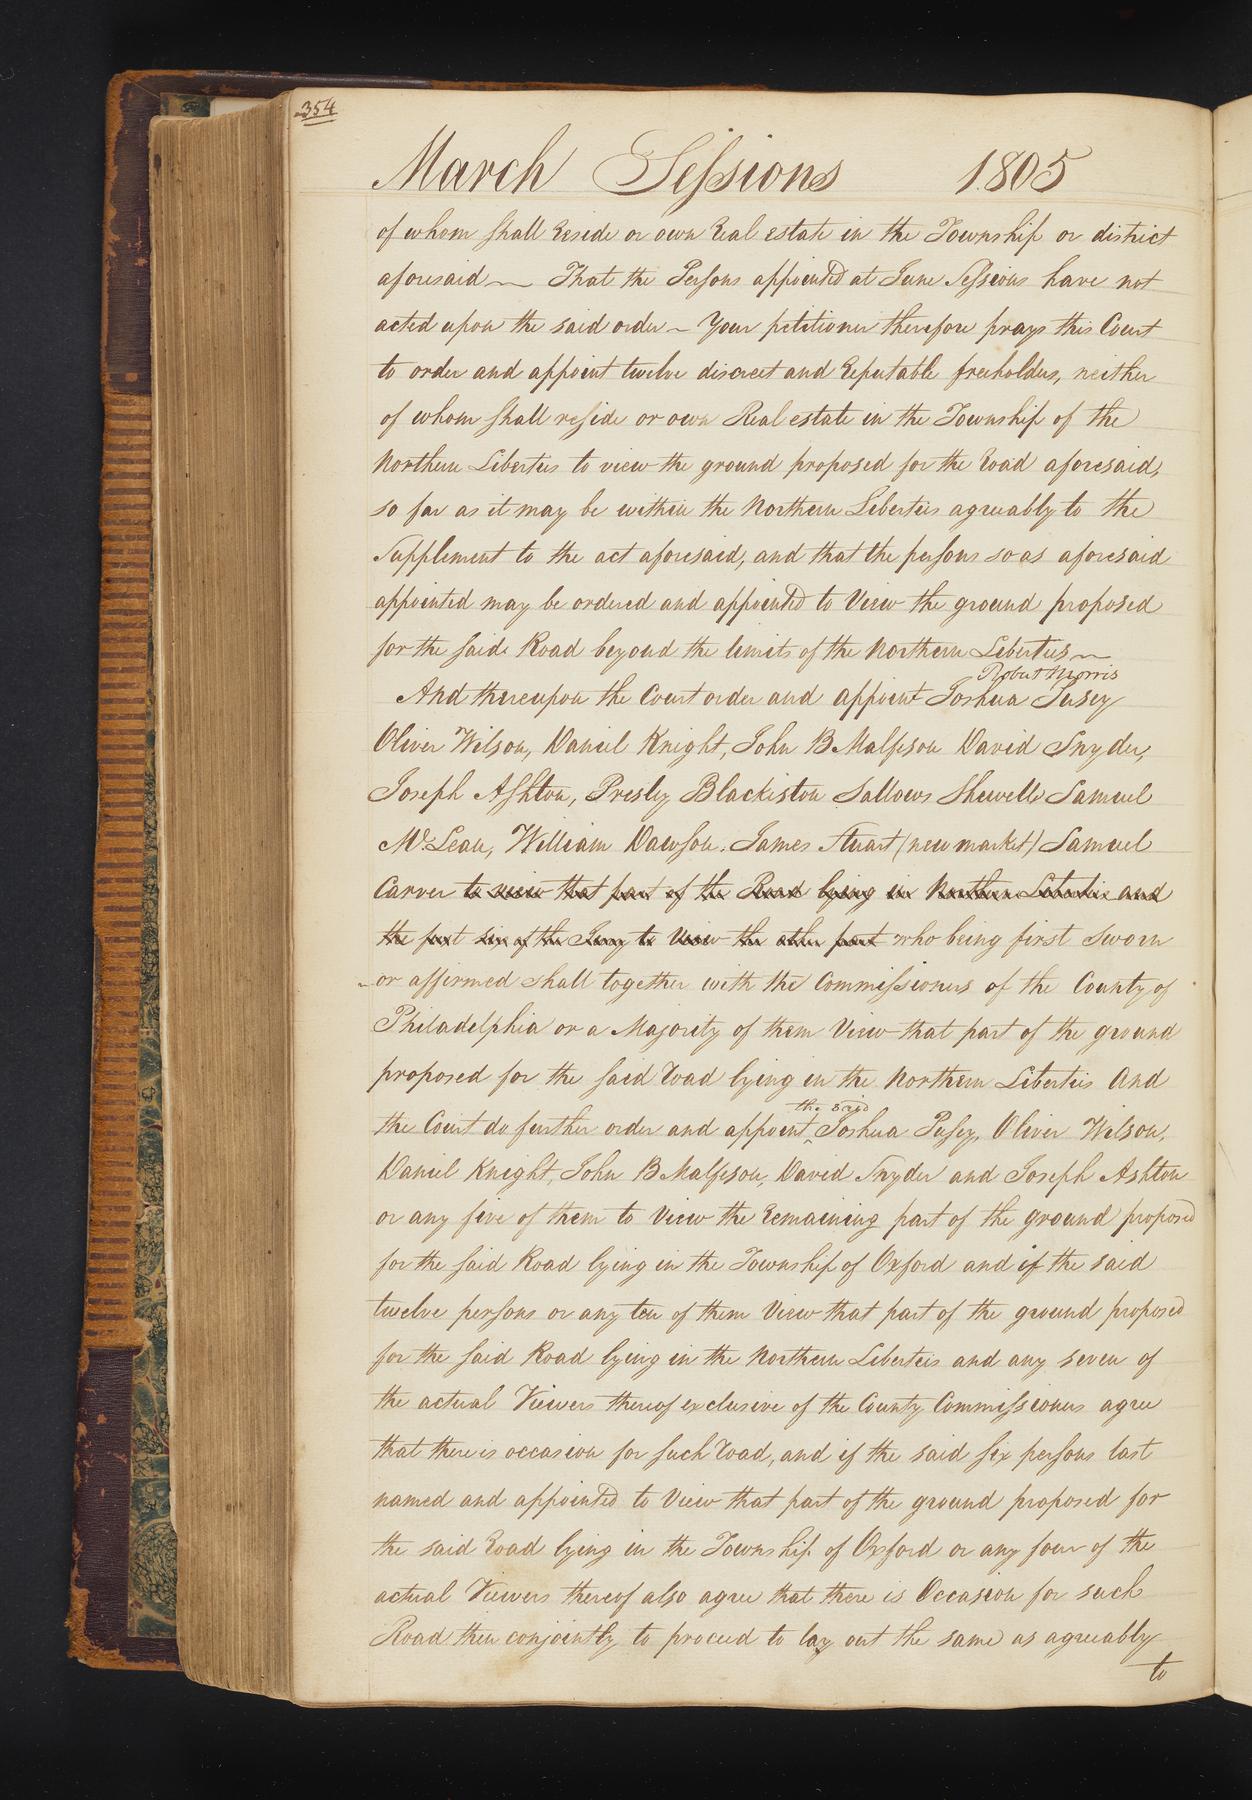 354
March Sessions 1805
of whom shall reside or own real estate in the Township or district
aforesaid — That the Persons appointed at June Sessions have not
acted upon the said order — Your petitioner therefore prays this Court
to order and appoint twelve discreet and reputable freeholders, neither
of whom shall reside or own Real estate in the Township of the
Northern Liberties to view the ground proposed for the road aforesaid,
so far as it may be within the Northern Liberties agreeably to the
Supplement to the act aforesaid, and that the persons so as aforesaid
appointed may be ordered and appointed to View the ground proposed
for the said Road beyond the limits of the Northern Liberties —
Robert Morris
And thereupon the Court order and appoint Joshua Pusey
Oliver Wilson, Daniel Knight, John B Malpson David Snyder,
Joseph Ashton, Presley Blackiston Sallows Shewell Samuel
Mc Lean, William Dawson. James Stuart (new market) Samuel
Carver to view that part of the Road lying in Northern Liberties and
the first six of the Jury to View the other part who being first Sworn
or affirmed shall together with the Commissioners of the County of
Philadelphia or a Majority of them View that part of the ground
proposed for the said road lying in the Northern Liberties And
the said
the Court do further order and appoint Joshua Pusey, Oliver Wilson,
Daniel Knight, John B Malpson, David Snyder and Joseph Ashton
or any five of them to View the remaining part of the ground proposed
for the said Road lying in the Township of Oxford and if the said
twelve persons or any ten of them View that part of the ground proposed
for the said Road lying in the Northern Liberties and any seven of
the actual Viewers thereof exclusive of the County Commissioners agree
that there is occasion for such road, and if the said six persons last
named and appointed to View that part of the ground proposed for
the said road lying in the Township of Oxford or any four of the
actual Viewers thereof also agree that there is Occasion for such
Road then conjointly to proceed to lay out the same as agreeably
to